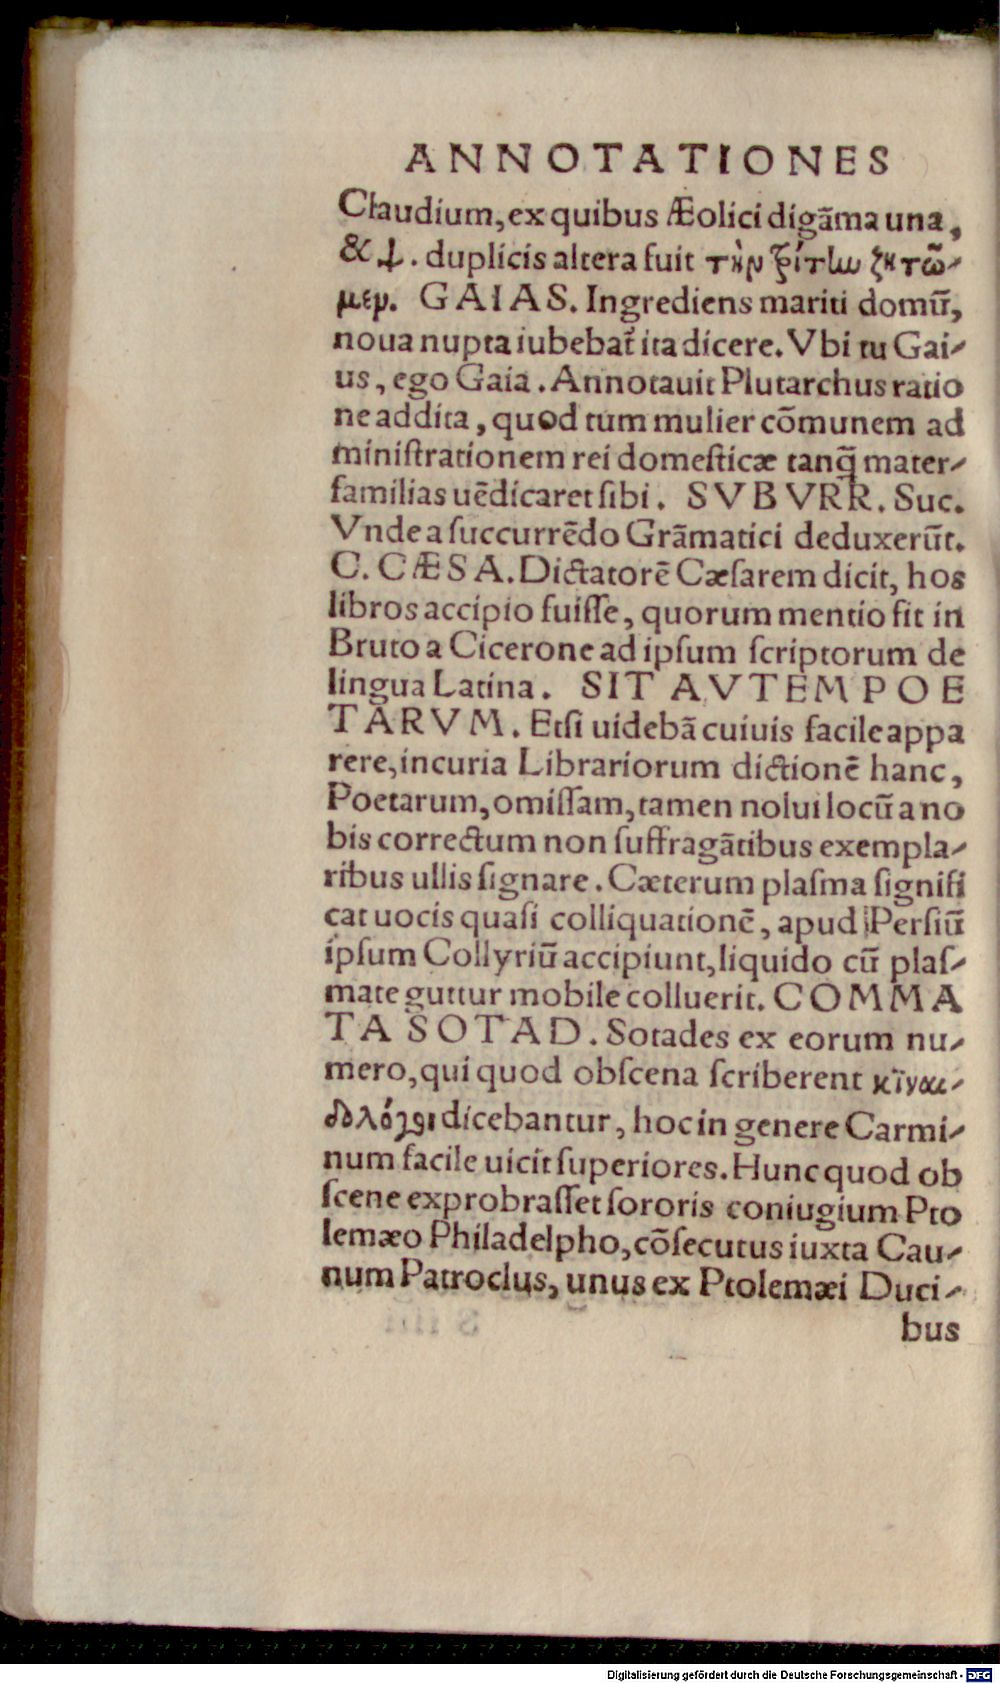 ANNOTATIONES
Claudium, ex quibus Æolici digãma una,
& . duplicis altera fuit τὴν τρίτην ζητῶ-
μεν. GAIAS. Ingrediens mariti domũ,
noua nupta iubebat̃ ita dicere. Vbi tu Gai-
us, ego Gaia. Annotauit Plutarchus ratio
ne addita, quod tum mulier cõmunem ad
miniſtrationem rei domeſticæ tanq̃ mater-
familias uẽdicaret ſibi. SVBVRR. Suc.
Vnde a ſuccurrẽdo Grãmatici deduxerũt.
C. CÆSA. Dictatorẽ Cæſarem dicit, hos
libros accipio fuiſſe, quorum mentio fit in
Bruto a Cicerone ad ipſum ſcriptorum de
lingua Latina. SIT AVTEM POE
TARVM. Etſi uidebã cuiuis facile appa
rere, incuria Librariorum dictionẽ hanc,
Poetarum, omiſſam, tamen nolui locũ a no
bis correctum non ſuffragãtibus exempla-
ribus ullis ſignare. Cæterum plaſma ſignifi
cat uocis quaſi colliquationẽ, apud Perſiũ
ipſum Collyriũ accipiunt, liquido cũ plaſ-
mate guttur mobile colluerit. COMMA
TA SOTAD. Sotades ex eorum nu-
mero, qui quod obſcena ſcriberent κίναι-
δολόγοι dicebantur, hoc in genere Carmi-
num facile uicit ſuperiores. Hunc quod ob
ſcene exprobraſſet ſororis coniugium Pto
lemæo Philadelpho, cõſecutus iuxta Cau-
num Patroclus, unus ex Ptolemæi Duci-
bus
Digitalisierung gefördert durch die Deutsche Forschungsgemeinschaft - DFG